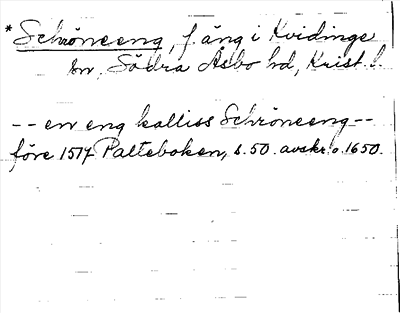 *Schröneeng, f. äng i Kvidinge
sn, Södra Åsbo hd, Krist. l.
-- en eng kalliss Schröneeng --
före 1517 Palteboken, s. 50. avskr. o. 1650.